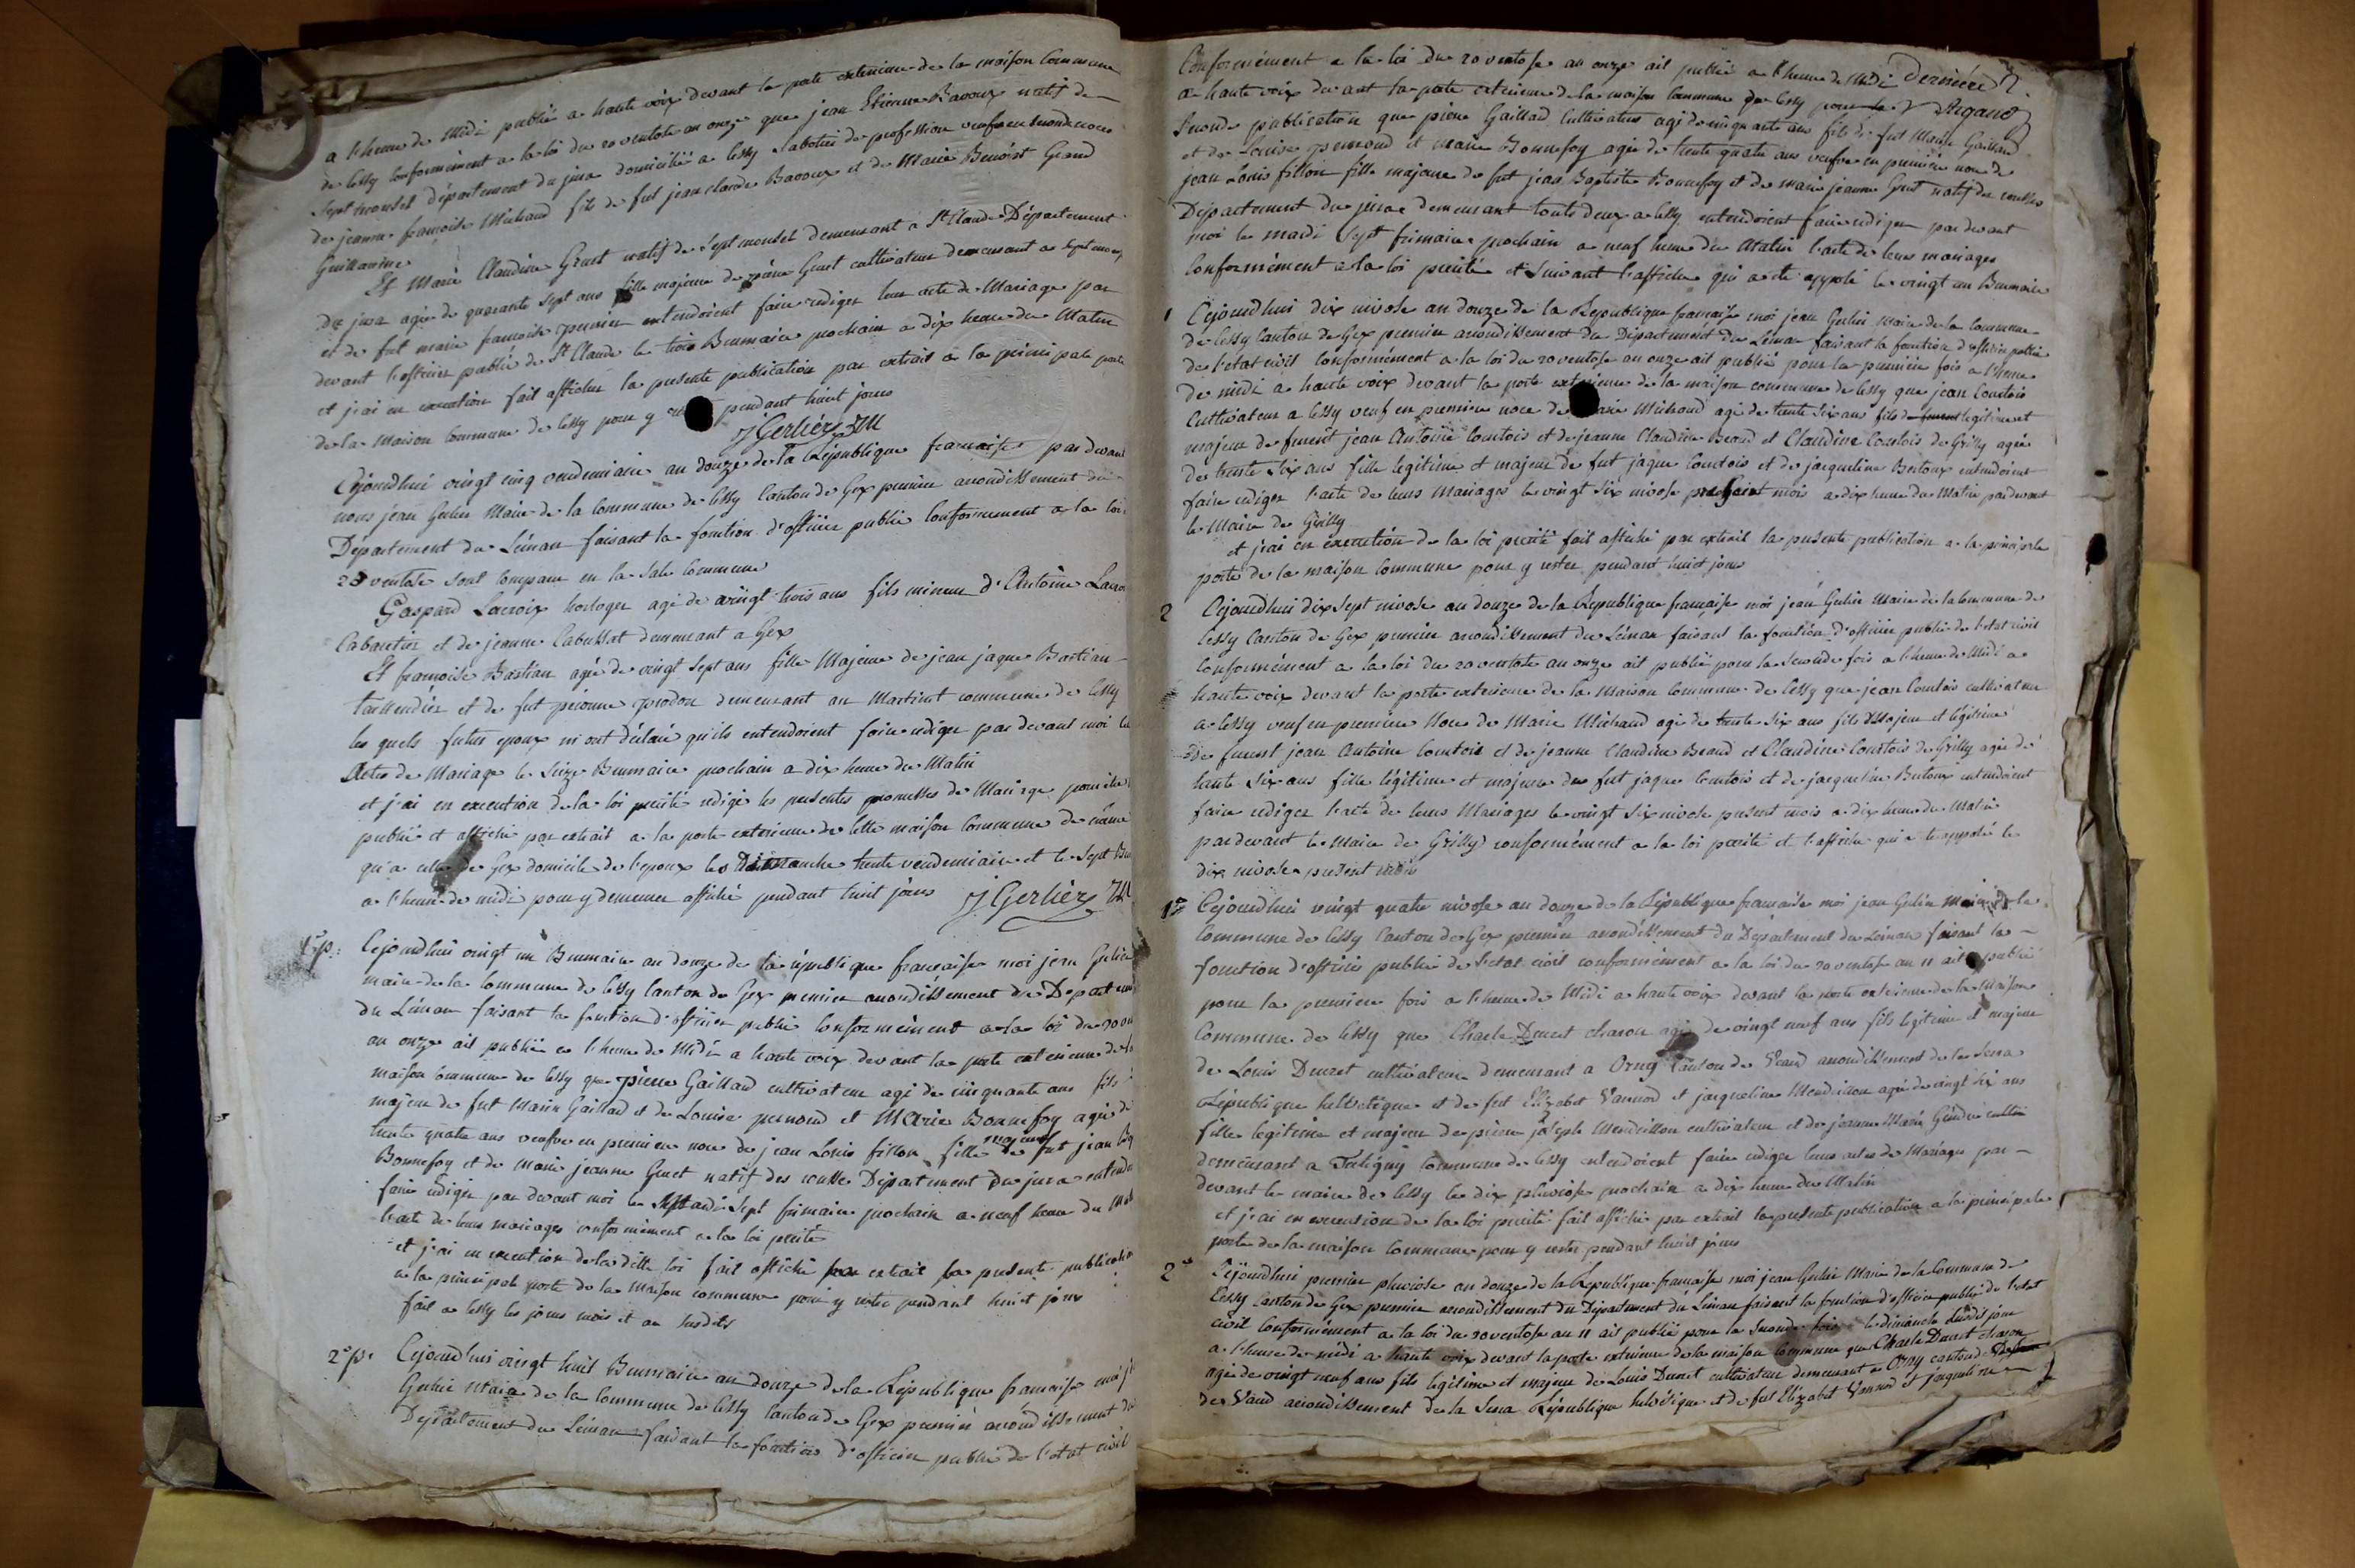 a l'heure de Midi publié a haute voix devant la porte exterieure de la maison Commune
de Cessy conformément a la loi du 20 ventose an onze que jean Etienne Bavoux natif de
Septmonsel département du jura domicilié a Cessy Sabotier de profession veuf en seconde noce
de jeanne françoise Michaud fils de fut jean claude Bavoux et de Marie Benoist Grand
Guillaume
Et Marie Claudine Gruet natif de Septmonsel demeurant a St Claude Département
du jura agée de quarante sept ans fille majeure de piere Gruet cultivateur demeurant a Septmonsel
et de fut marie françoise entendoient faire rediger leur acte de Mariage par
devant l'officier public de St Claude le trois Brumaire prochain a dix heure du Matin
et j'ai en execution fait afficher la presente publication par extrait a la principale porte
de la Maison Commune de Cessy pour y pendant huit jours
J Gerlier M
Cejourdhui vingt cinq vendemiaire an douze de la République francaise par devant
nous jean Gerlier Maire de la Commune de Cessy Canton de Gex premier arondissement du
Département du Léman faisant la fonction d'officier public conformement a la loi
20 ventose sont comparu en la sale Commune
Gaspard Lacroix horloger agé de vingt trois ans fils mineur d'Antoine Lacroix
Cabaretier et de jeanne Cabussat demeurant a Gex
Et francoise Bastian agée de vingt sept ans fille Majeure de jean jaque Bastian
taillendier et de fut prodon demeurant au Martinet commune de Cessy
les quels futur epoux m'ont déclaré qu'ils entendoient faire rediger par devant moi
Actes de Mariage le Seize Brumaire prochain a dix heure du Matin
et j'ai en execution de la loi precité redigé les presentes promesses de Mariage pour être
publié et affiché par extrait a la porte exterieure de cette maison Commune de même
qu'a celle de Gex domicile de l'epoux les Dimanche trente vendemiaire et le Sept
a l'heure de midi pour y demeurer affiché pendant huit jours J Gerlier M
1re p: Cejourdhui vingt un Brumaire an douze de la république francaise moi jean Gerlier
maire de la Commune de Cessy Canton de Gex premier arondissement du Departement
du Léman faisant la fonction d'officier public conformément a la loi du 20
an onze ait publié a l'heure de Midi a haute voix devant la porte exterieure de la
maison Commune de Cessy que pierre Gaillard cultivateur agé de cinquante ans fils
majeur de fut Marin Gaillard et de Louise pernoud et Marie Bonnefoy agée de
trente quatre ans veufve en premiere noce de jean Louis fillon fille majeure de fut jean
Bonnefoy et de Marie jeanne Gruet natif des Département du jura
faire rediger par devant moi le Mardi Sept frimaire prochain a neuf heure du
l'acte de leurs mariages conformément a la loi precité
et j'ai en execution de la ditte loi fait affiché par extrait la presente publication
a la principale porte de la Maison commune pour y rester pendant huit jour
fait a Cessy les jours mois et an susdits
2e p: Cejourdhui vingt huit Brumaire an douze de la République francaise moi
Gerlier Maire de la Commune de Cessy Canton de Gex premier arondissement du
Département du Léman faisant la fonction d'officier public de l'etat civil
Conformément a la loi du 20 ventose an onze ait publié a l'heure de Midi derniere
a haute voix devant la porte exterieure de la maison Commune de Cessy pour la
seconde publication que piere Gaillard Cultivateur agé de cinquante ans fils de fut Marin Gaillard
et de Louise pernoud et marie Bonnefoy agée de trente quatre ans veufve en premiere noce de
jean Louis fillion fille majeure de fut jean Baptiste Bonnefoy et de marie jeanne Gruet natif du
Département du jura demeurant toute deux a Cessy entendoient faire rediger par devant
moi le mardi Sept frimaire prochain a neuf heure du Matin l'acte de leurs mariages
conformément a la loi precité et suivant l'affiche qui a été apposé le vingt un Brumaire
1 Cejourdhui dix nivose an douze de la République francaise moi jean Gerlier Maire de la Commune
de Cessy Canton de Gex premier arondissement du Département du Léman faisant la fonction d'officier public
de l'etat civil conformément a la loi du 20 ventose an onze ait publié pour la premiere fois a l'heure
de midi a haute voix devant la porte exterieure de la maison commune de Cessy que jean Courtois
cultivateur a Cessy veuf en premiere noce de Marie Michaud agé de trente six ans fils legitime et
majeur de furent jean Antoine Courtois et de jeanne Claudine Beaud et Claudine Courtois de Grilly agée
de trente six ans fille legitime et majeur de fut jaque Courtois et de jacqueline Bertoux entendoient
faire rediger l'acte de leurs Mariages le vingt six nivose mois a dix heure du Matin par devant
le Maire de Grilly
et j'ai en éxecution de la loi precité fait affiché par extrait la presente publication a la principale
porte de la maison Commune pour y rester pendant huit jour
2 Cejourdhui dix sept nivose an douze de la Republique francaise moi jean Gerlier Maire de la Commune de
Cessy Canton de Gex premier arondissement du Léman faisant la fonction d'officier public de l'etat civil
conformément a la loi du 20 ventose an onze ait publié pour la seconde fois a l'heure de Midi a
haute voix devant la porte exterieure de la Maison Commune de Cessy que jean Courtois cultivateur
a Cessy veuf en premiere Noce de Marie Michaud agé de trente six ans fils Majeur et légitime
de furent jean Antoine Courtois et de jeanne Claudine Beaud et Claudine Courtois de Grilly agée de
trente six ans fille légitime et majeure de fut jaque Courtois et de jacqueline Bertoux entendoient
faire rediger l'acte de leurs Mariages le vingt six nivose present mois a dix heure du Matin
par devant le Maire de Grilly conformément a la loi precité et l'affiche qui a été apposé le
dix nivose present mois
1re Cejourdhui vingt quatre nivose an douze de la République francaise moi jean Gerlier Maire de la
Commune de Cessy Canton de Gex premier arondissement du Département du Léman faisant la
fonction d'officier public de l'etat civil conformément a la loi du 20 ventose an 11 ait publié
pour la premiere fois a l'heure de Midi a haute voix devant la porte exterieure de la Maison
Commune de Cessy que Charle Ducret charon agé de vingt neuf ans fils legitime et majeur
de Louis Ducret cultivateur demeurant a Orny Canton de Vaud arondissement de la Sera
République helvétique et de fut Elizabet Vannod et jacqueline Mendrillon agée de vingt six ans
fille legitime et majeur de pierre joseph Mendrillon cultivateur et de jeanne Marie
demeurant a Tutigny Commune de Cessy entendoient faire rediger leurs actes de Mariages par
devant le maire de Cessy le dix pluviose prochain a dix heure du Matin
et j'ai en execution de la loi precité fait affiché par extrait la presente publication a la principale
porte de la maison Commune pour y rester pendant huit jours
2e Cejourdhui premier pluviose an douze de la République francaise moi jean Gerlier Maire de la Commune de
Cessy Canton de Gex premier arondissement du Département du Léman faisant la fonction d'officier public de l'etat
civil conformément a la loi du 20 ventose an 11 ait publié pour la seconde fois le dimanche susdit jour
a l'heure de midi a haute voix devant la porte exterieure de la maison commune que Charle Ducret charon
agé de vingt neuf ans fils legitime et majeur de Louis Ducret cultivateur demeurant a Orny canton
de Vaud arondissement de la Sera République helvétique et de fut Elizabet Vannod et jaqueline